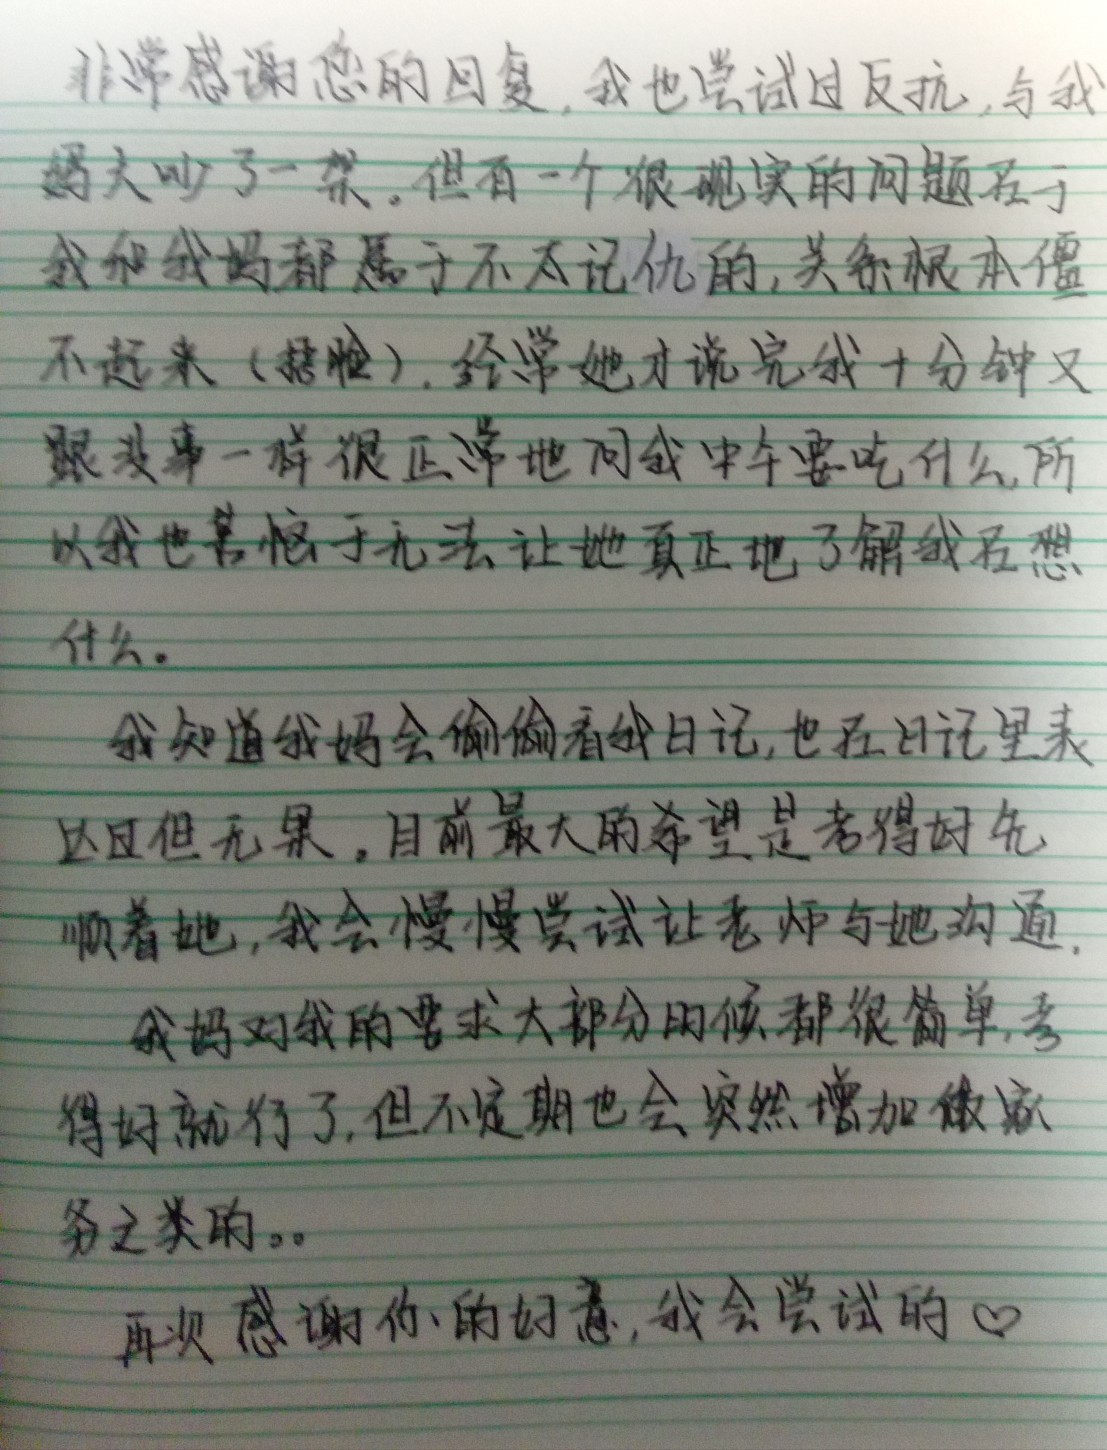 非常感谢您的回复，我也尝试过反抗，与我
妈大吵了一架。但有一个很现实的问题在于
我和我妈都属于不太记仇的，关系根本僵
不起来（捂脸），经常她才说完我十分钟又
跟没事一样很正常地问我中午要吃什么，所
以我也苦恼于无法让她真正地了解我在想
什么。
我知道我妈会偷偷看我日记，也在日记里表
达过但无果。目前最大的希望是考得好先
顺着她，我会慢慢尝试让老师与她沟通，
我妈对我的要求大部分时候都很简单，考
得好就行了，但不定期也会突然增加做家
务之类的。。
再次感谢你的好意，我会尝试的♡